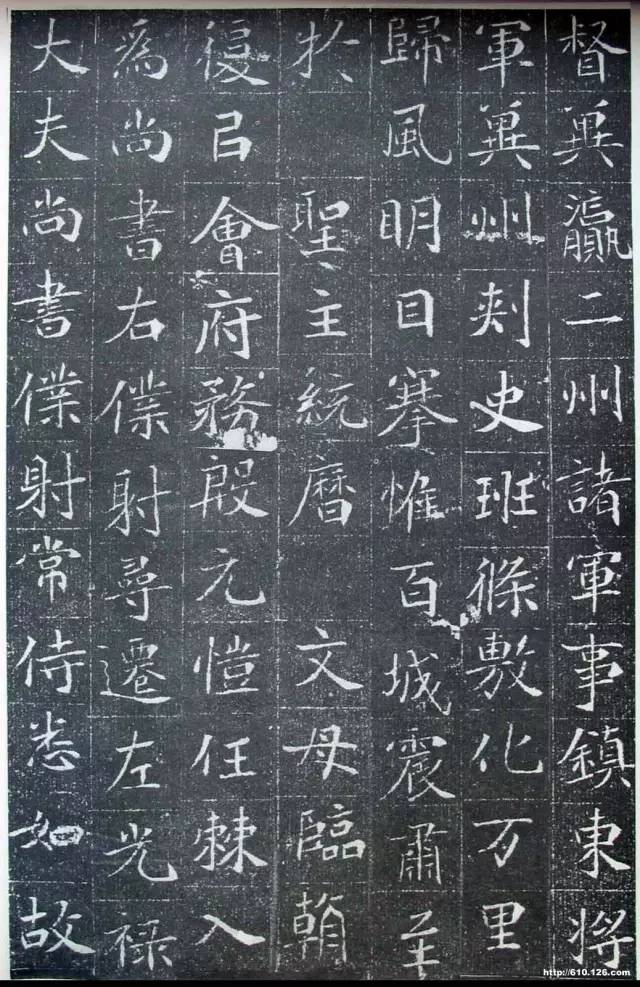 督冀瀛二州諸軍事鎮東將
軍冀州刾史班條敷化万里
歸風明目搴惟百城震肅至
扵 聖主統曆 文母臨朝
復㠯會府務殷元愷任棘入
爲尚書右僕射尋遷左光禄
大夫尚書僕射常侍悉如故
http://610.126.com